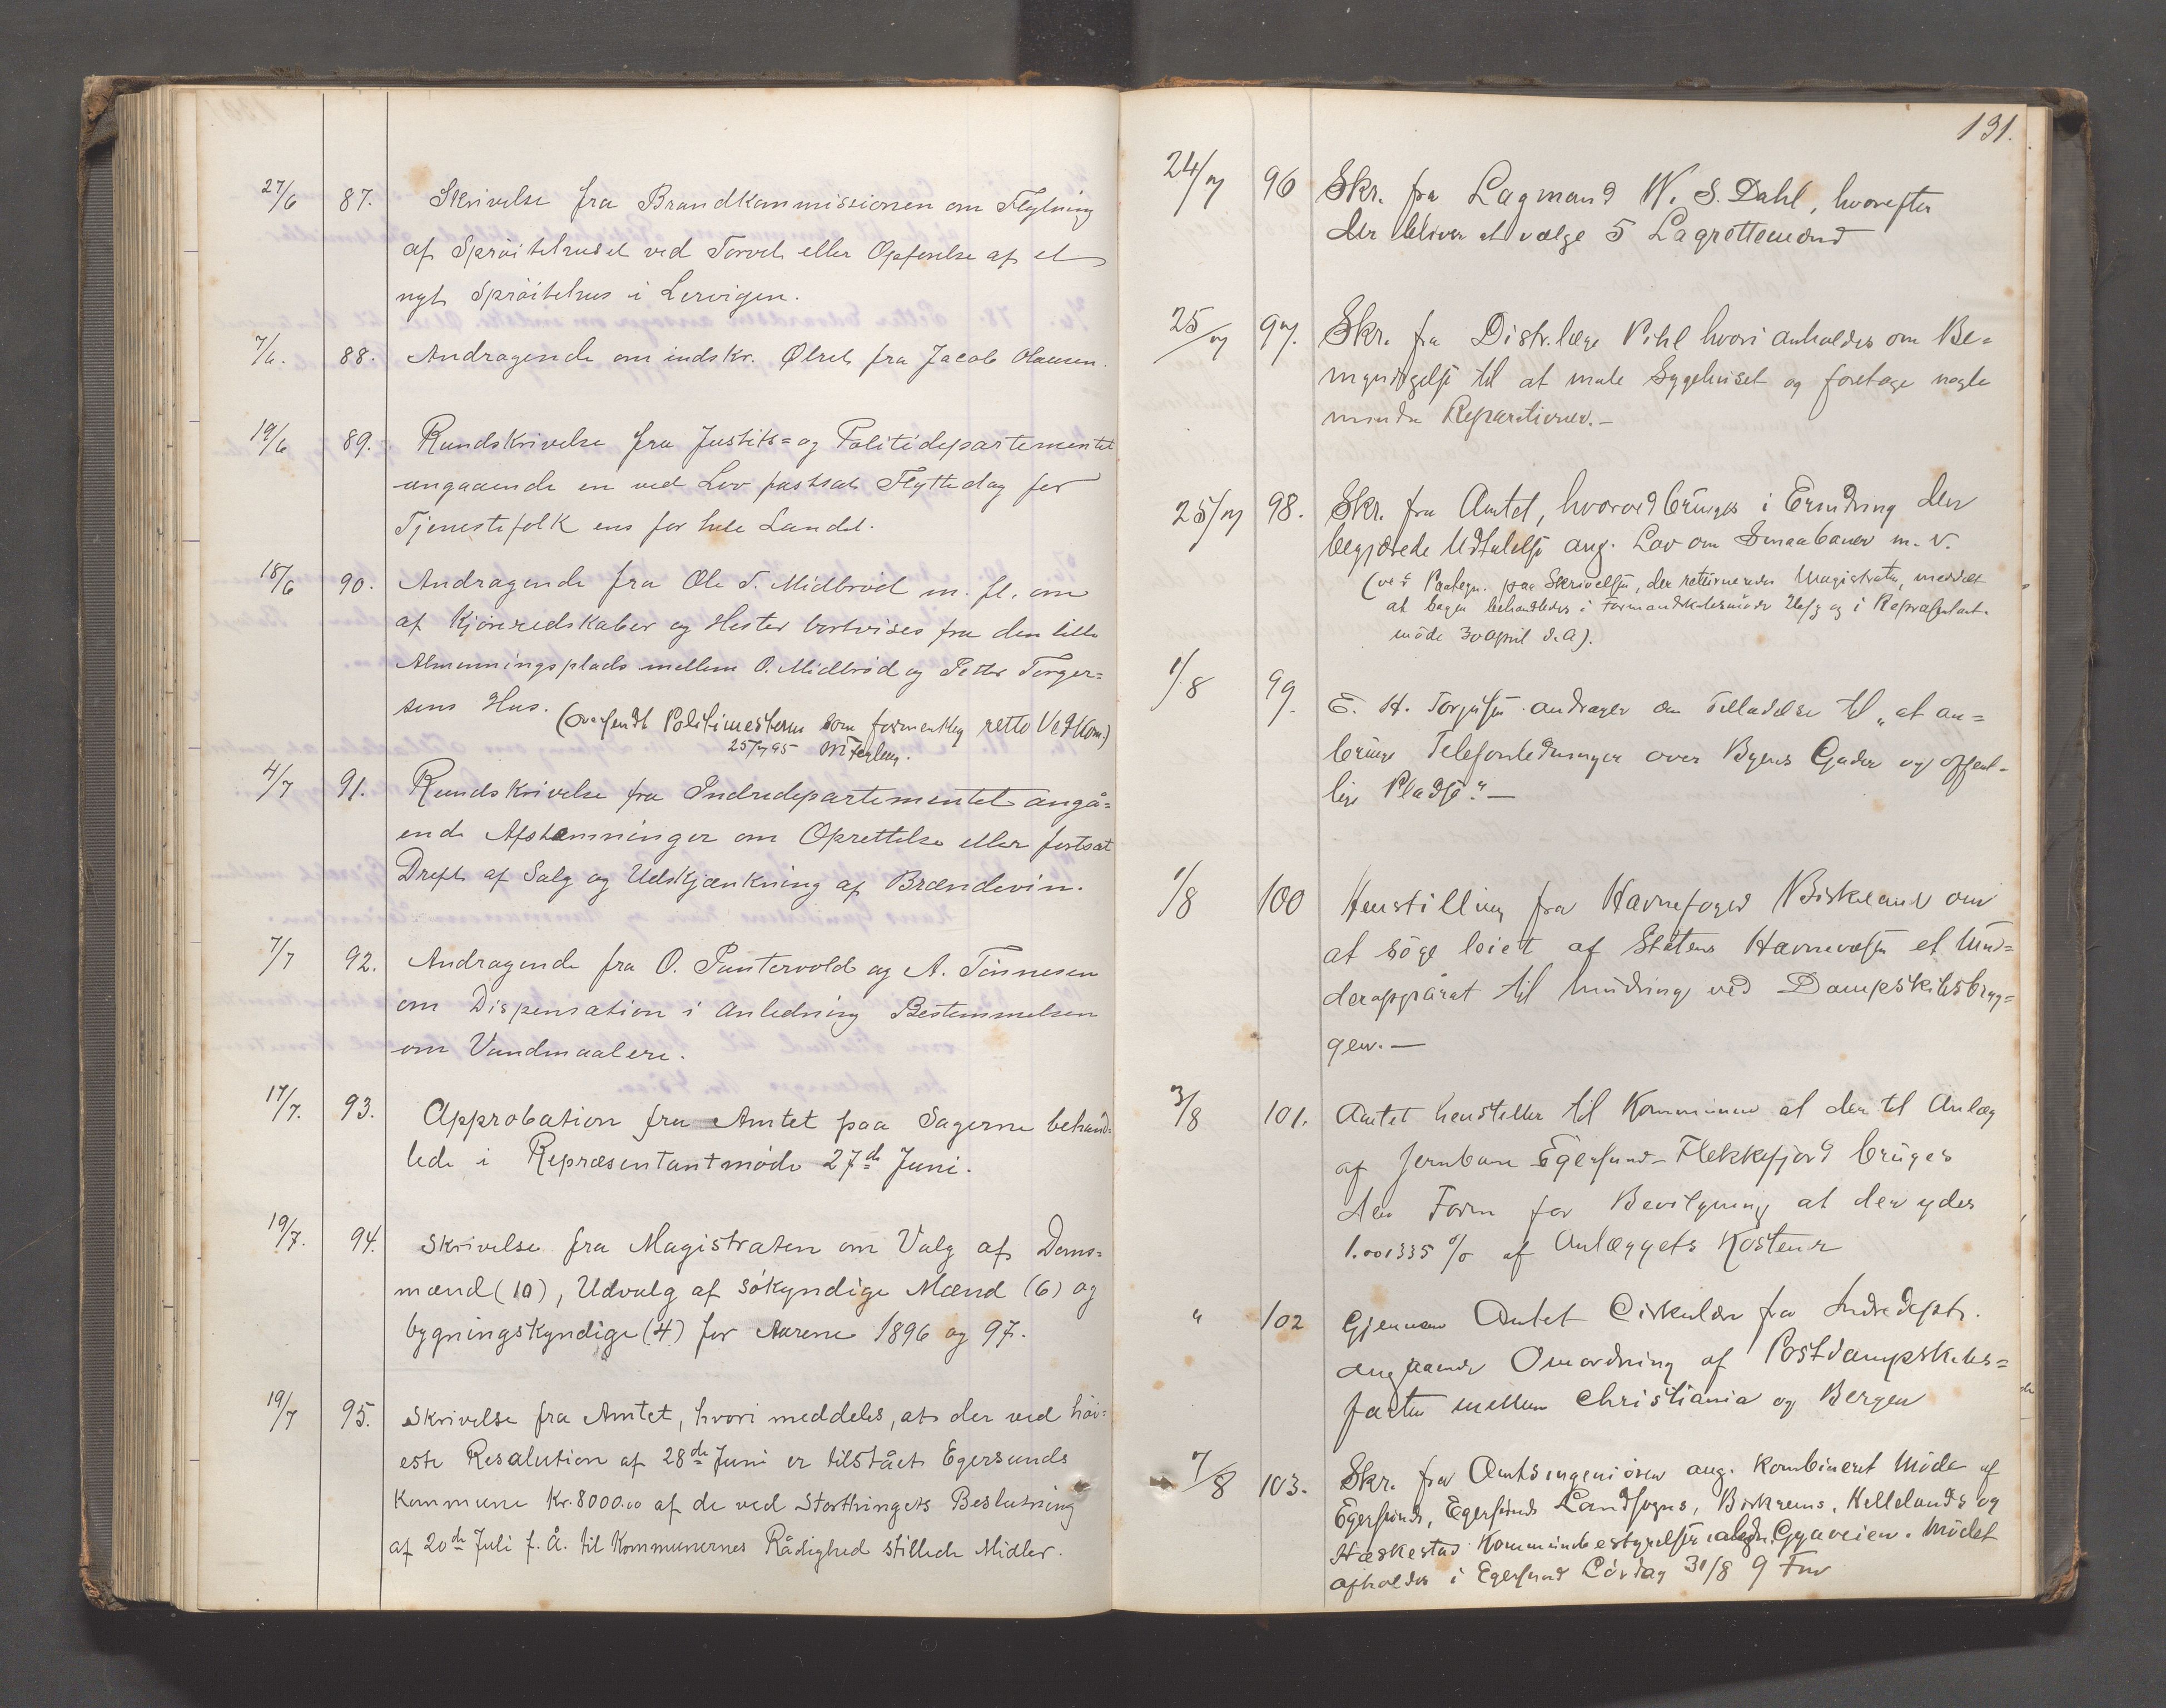 27/6 87. Skrivelse fra Brandkommissionen om Flytning
af Sprøitehuset ved Torvet eller Opførelse af et
nyt Sprøitehus i Lervigen.
7/6. 88. Andragende om indskr. Ølret fra Jacob Olausen.
19/6 89. Rundskrivelse fra Justits= og Politidepartementet
angaaende en ved Lov fastsat Flyttedag for
Tjenestefolk ens for hele Landet.
18/6 90. Andragende fra Ole T. Midbrød m. fl. om
at Kjøreredskaber og Hester bortvises fra den lille
Almenningsplads mellem O. Midbrød og Petter Torger=
sens Hus. (Oversendt Politimesteren som formentlig rette Vedkom.)
25/7 95
4/7 91. Rundskrivelse fra Indredepartementet angå=
ende Afstemninger om Oprettelse eller fortsat
Drift af Salg og Udskjænkning af Brændevin.
7/7 92. Andragende fra O. Puntervold og A. Tønnesen
om Dispensation i Anledning Bestemmelsen
om Vandmaalere.
17/7. 93. Approbation fra Amtet paa Sagerne behand=
lede i Repræsentantmøde 27de Juni.
19/7. 94. Skrivelse fra Magistraten om Valg af Doms=
mænd (10), Udvalg af søkyndige Mænd (6) og
bygningskyndige (4) for Aarene 1896 og 97.
19/7 95. Skrivelse fra Amtet, hvori meddeles, at der ved høi=
este Resolution af 28de Juni er tilstået Egersunds
Kommune Kr. 8000.00 af de ved Storthingets Beslutning
af 20de Juli f. Å. til Kommunernes Rådighed stillede Midler.
131.
24/7 96 Skr. fra Lagmand W. S. Dahl, hvorefter
der bliver at vælge 5 Lagrettemænd
25/7 97. Skr. fra Distr.læge Pihl hvori anholdes om Be=
myndigelse til at male Sygehuset og foretage nogle
mindre Reparationer.—
25/7 98. Skr. fra Amtet, hvorved bringes i Erindring den
begjærede Udtalelse ang. Lov om Smaabaner m. v.
(ved Paategn. paa Skrivelsen, der returneredes Magistraten, meddelt
at Sagen behandledes i Formandskabsmøde og i Repræsentant-
møde 30 April d.A).
1/8 99. E. H. Torjusen andrager om Tilladelse til „at an=
bringe Telefonledninger over Byens Gader og offent-
lige Pladse".—
1/8 100 Henstilling fra Havnefoged Birkeland om
at søge leiet af Statens Havnevæsen et Mud=
derapparat til Mudring ved Dampskibsbryg=
gen.—
3/8 101. Amtet henstiller til Kommunen at der til Anlæg
af Jernbane Egersund-Flekkefjord bruges
den Form for Bevilgning at der ydes
1.001335 % af Anlæggets Kostende
" 102 Gjennem Amtet Cirkulære fra Indredept.
angaaende Omordning af Postdampskibs=
farten mellem Christiania og Bergen
7/8 103. Skr. fra Amtsingeniøren ang. kombineret Møde af
Egersunds, Egersunds Landsogns, Birkrems, Hellelands og
Heskestad Kommunebestyrelser Gyaveien. Mødet
afholdes i Egersund Lørdag 31/8 9 Fm